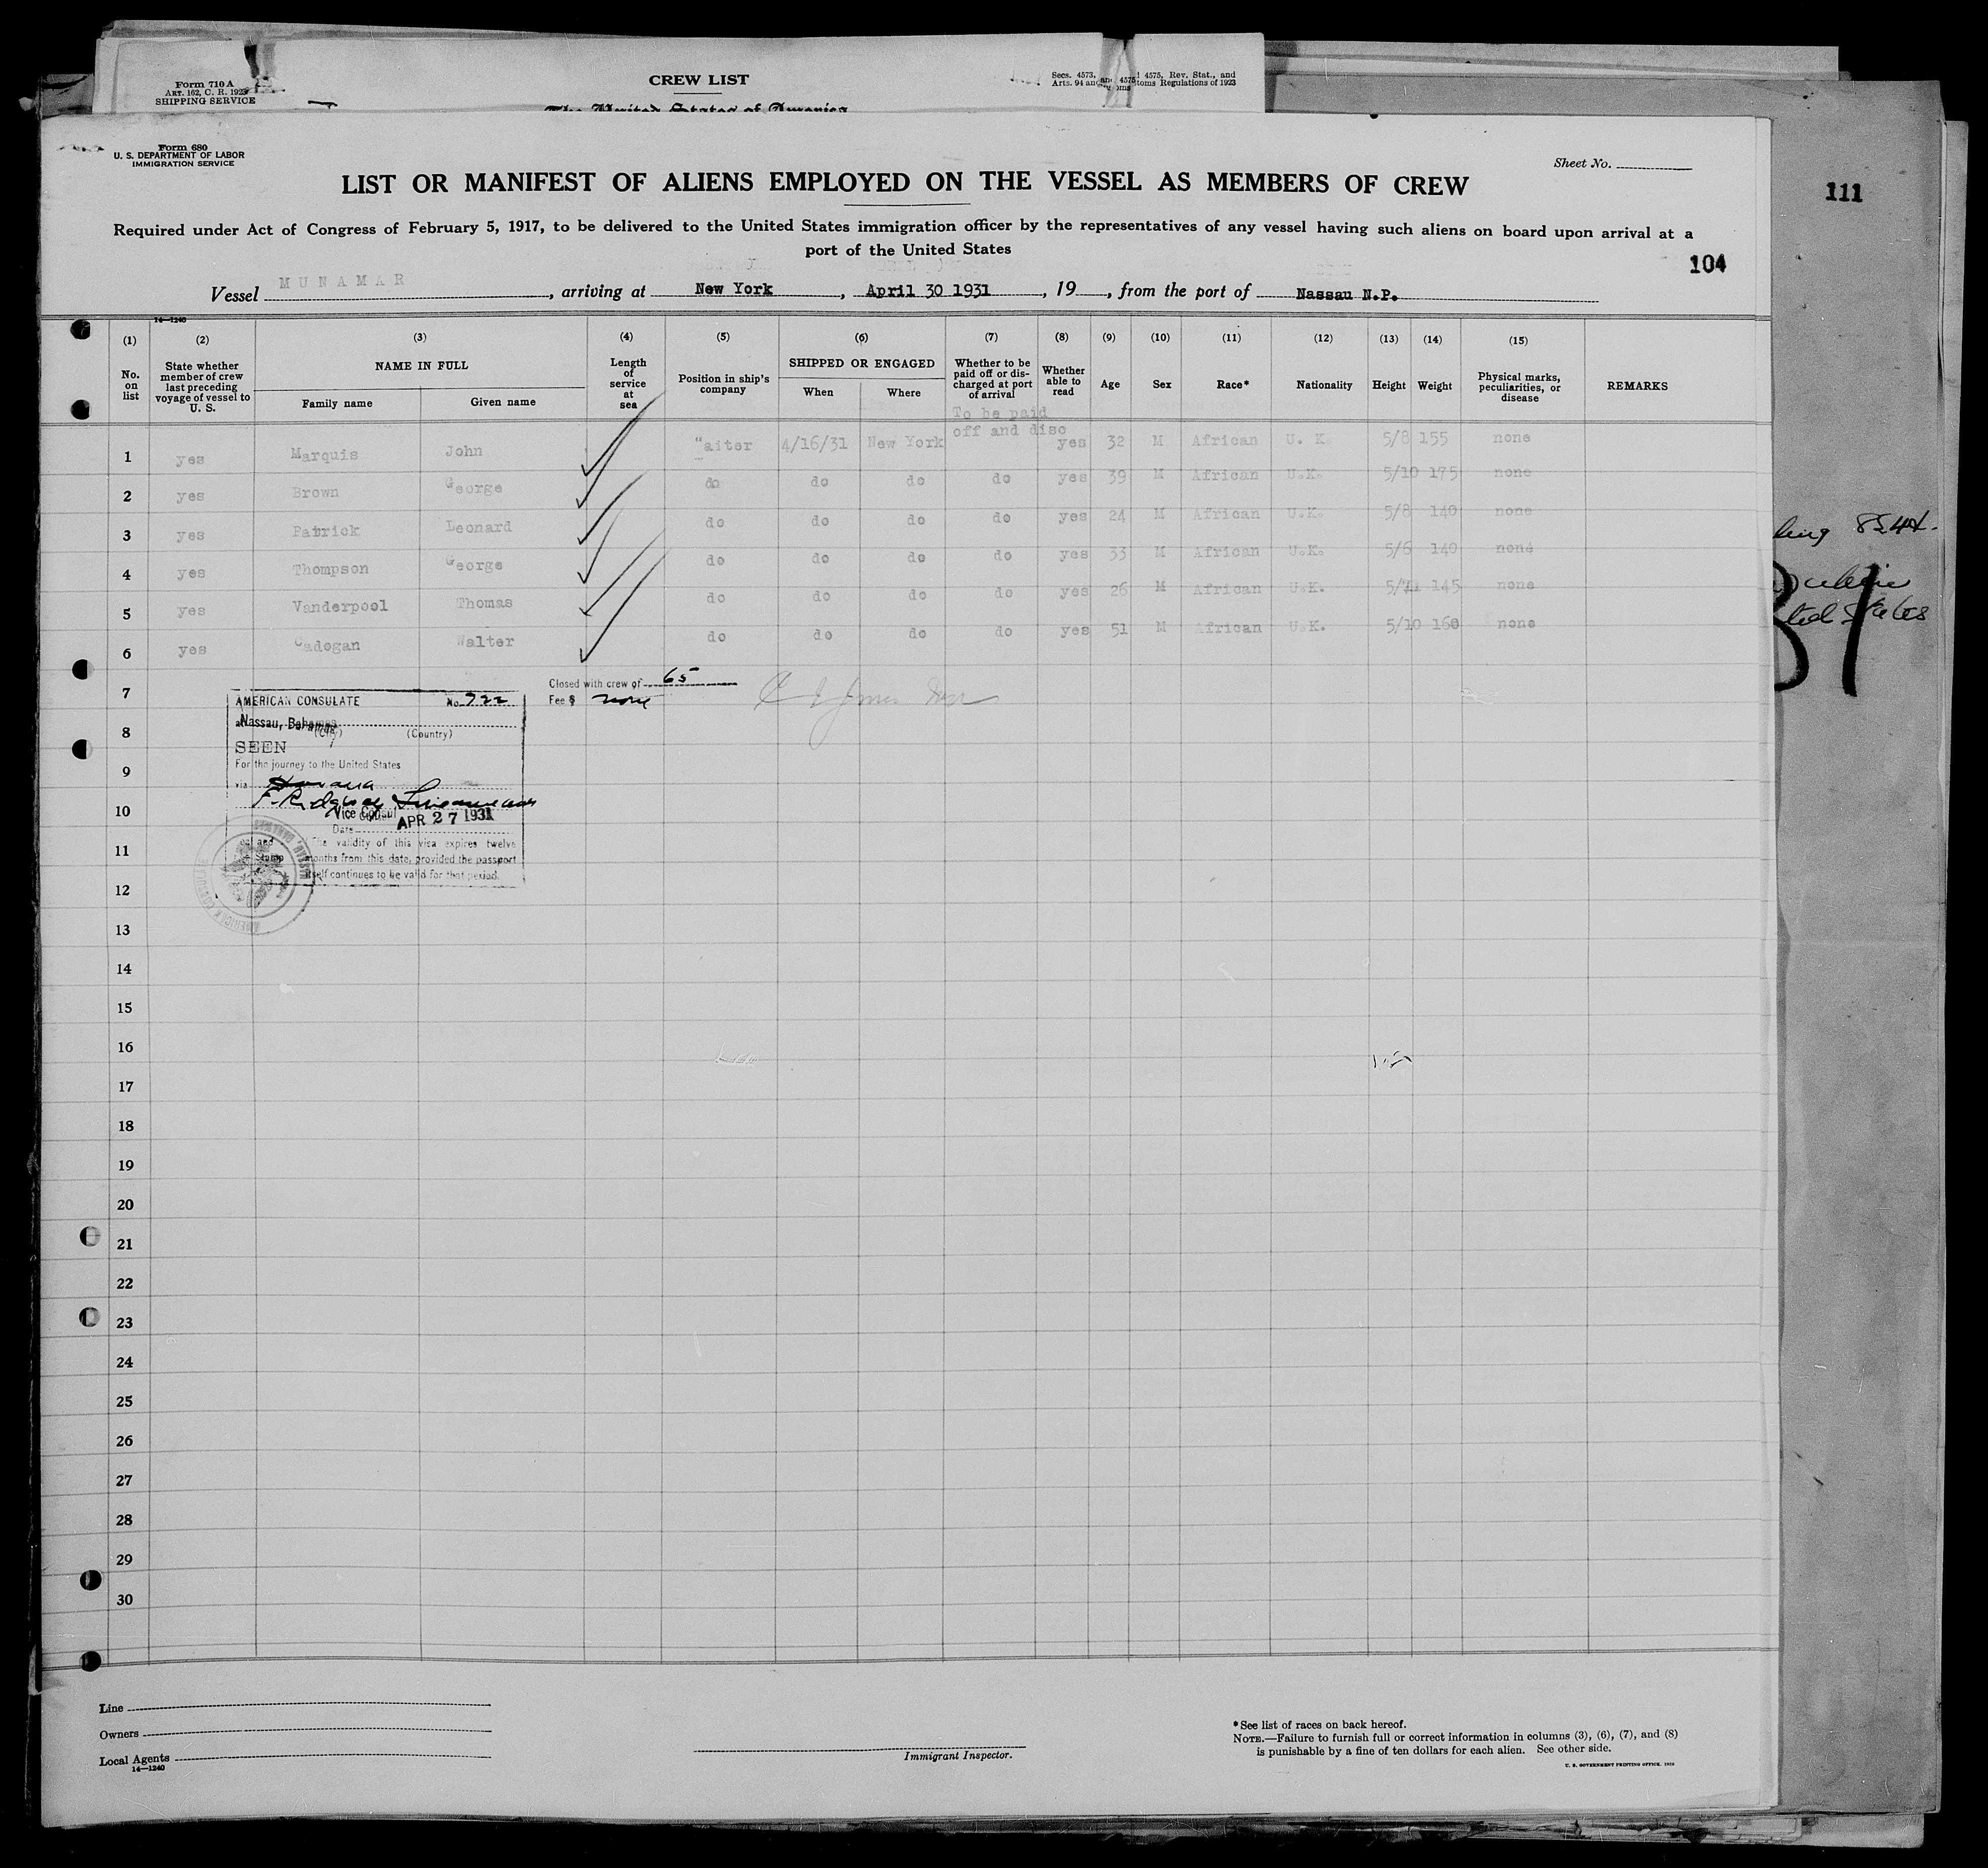 Form 710 A
ART. 162, C. R. 1923
SHIPPING SERVICE
CREW LIST
Secs. 4573, 4575, Rev. Stat., and
Arts. 94 and Customs Regulations of 1923
The United States of America
Form 680
U. S. DEPARTMENT OF LABOR
IMMIGRATION SERVICE
Sheet No.
LIST OR MANIFEST OF ALIENS EMPLOYED ON THE VESSEL AS MEMBERS OF CREW
111
Required under Act of Congress of February 5, 1917, to be delivered to the United States immigration officer by the representatives of any vessel having such aliens on board upon arrival at a
port of the United States
104
Vessel MUNAMAR, arriving at New York, April 30 1931, 19, from the port of Nassau N.P.
14—1240
(1) (2) (3) (4) (5) (6) (7) (8) (9) (10) (11) (12) (13) (14) (15)
No. on list
State whether member of crew last preceding voyage of vessel to U. S.
NAME IN FULL
Family name
Given name
Length of service at sea
Position in ship's company
SHIPPED OR ENGAGED
When
Where
Whether to be paid off or discharged at port of arrival
Whether able to read
Age
Sex
Race*
Nationality
Height
Weight
Physical marks, peculiarities, or disease
REMARKS
To be paid
off and disc
1 yes Marquis John "aiter 4/16/31 New York yes 32 M African U. K. 5/8 155 none
2 yes Brown George do do do do yes 39 M African U.K. 5/10 175 none
3 yes Leonard do do do do yes 24 M African U.K. 5/8 140 none
4 yes Thompson George do do do do yes 33 M African U.K. 5/6 140 none
5 yes Vanderpool Thomas do do do do yes 26 M African U.K. 145 none
6 yes Cadogan Walter do do do do yes 51 M African U.K. 5/10 160 none
7
8
9
10
11
12
13
14
15
16
17
18
19
20
21
22
23
24
25
26
27
28
29
30
Closed with crew of 65
Fee $ none
AMERICAN CONSULATE No. 722
at Nassau, Bahamas
(City) (Country)
SEEN
For the journey to the United States
via Havana
F. Ridgway
Vice Consul
Date APR 27 1931
The validity of this visa expires twelve
months from this date, provided the passport
itself continues to be valid for that period.
Line
Owners
Local Agents
14—1240
Immigrant Inspector.
*See list of races on back hereof.
NOTE.—Failure to furnish full or correct information in columns (3), (6), (7), and (8)
is punishable by a fine of ten dollars for each alien. See other side.